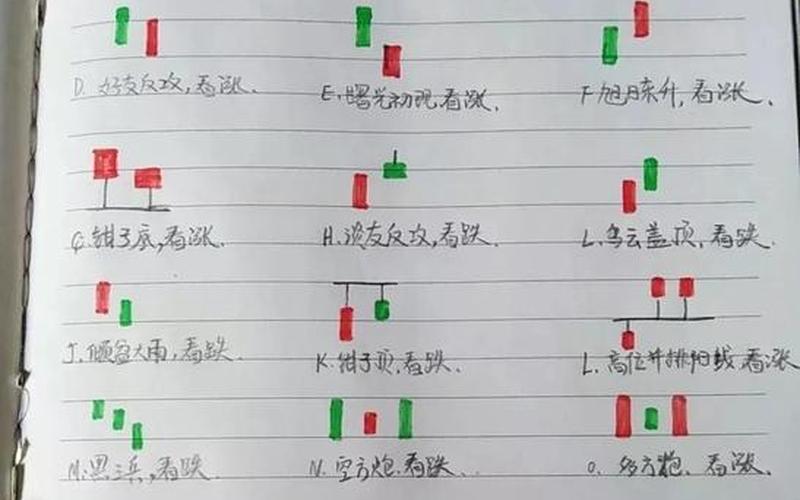 D. 好友反攻,看涨.
E. 曙光初现,看涨.
F. 旭日东升,看涨.
G. 钳子底,看涨.
H. 淡友反攻,看跌.
L. 乌云盖顶,看跌.
J. 倾盆大雨,看跌.
K. 钳子顶,看跌.
L. 高位并排阳线,看涨
M. 黑三兵,看跌
N. 空方炮.看跌.
O. 多方炮. 看涨.